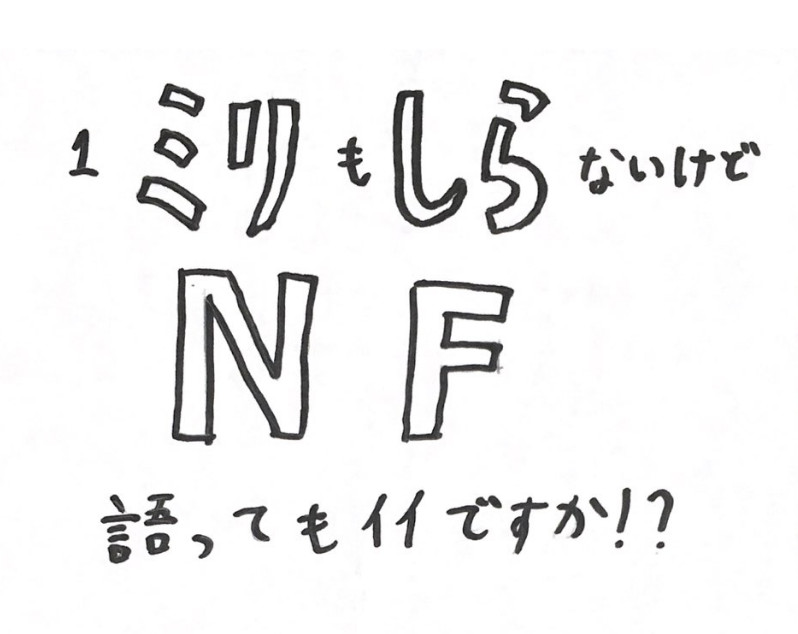 1ミリもしらないけど
NF
語ってもイイですか!?